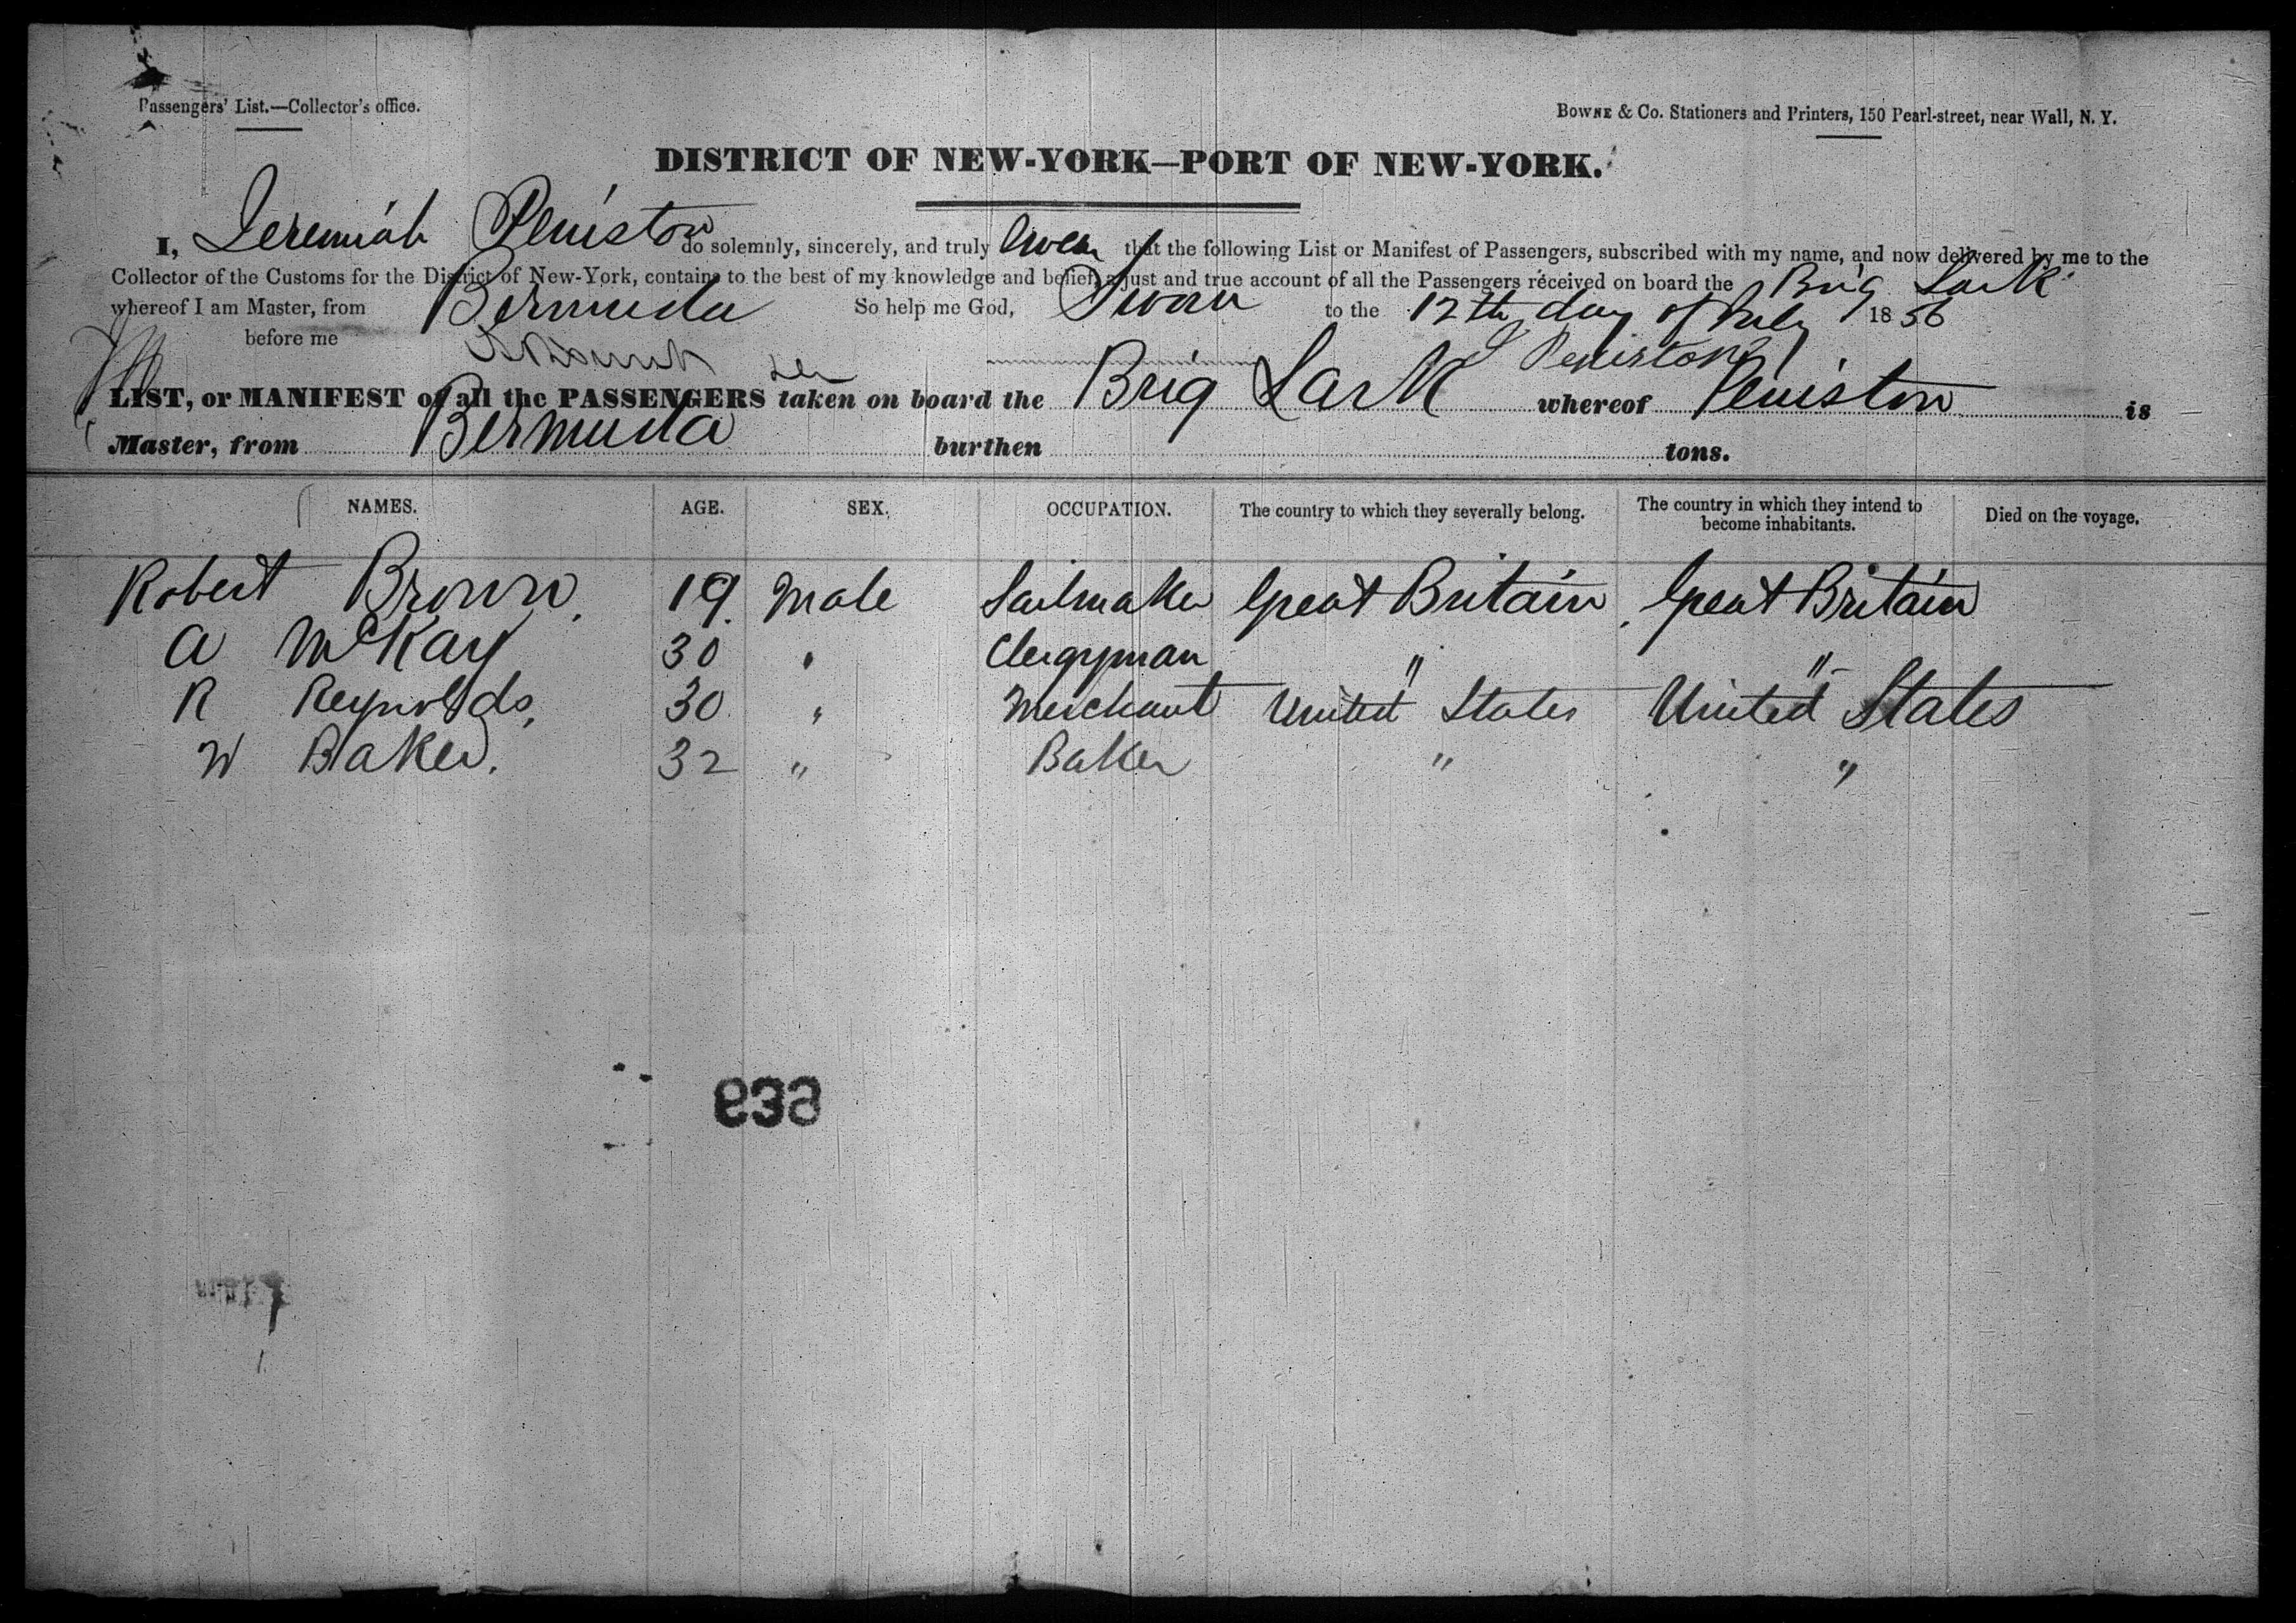 Passengers' List.—Collector's office.
Bowne & Co. Stationers and Printers, 150 Pearl-street, near Wall, N. Y.
DISTRICT OF NEW-YORK—PORT OF NEW-YORK.
I, Jeremiah Peniston do solemnly, sincerely, and truly Swear that the following List or Manifest of Passengers, subscribed with my name, and now delivered by me to the
Collector of the Customs for the District of New-York, contains to the best of my knowledge and belief, a just and true account of all the Passengers received on board the Brig Lark
whereof I am Master, from Bermuda So help me God, Swear to the 12th day of July 1856
before me J Peniston
LIST, or MANIFEST of all the PASSENGERS taken on board the Brig Lark whereof Peniston is
Master, from Bermuda burthen tons.
NAMES. AGE. SEX. OCCUPATION. The country to which they severally belong. The country in which they intend to become inhabitants. Died on the voyage.
Robert Brown. 19. Male Sailmaker Great Britain. Great Britain
A McKay 30 " Clergyman " "
R Reynolds, 30. " Merchant United States United States
W Baker. 32 " Baker " "
639